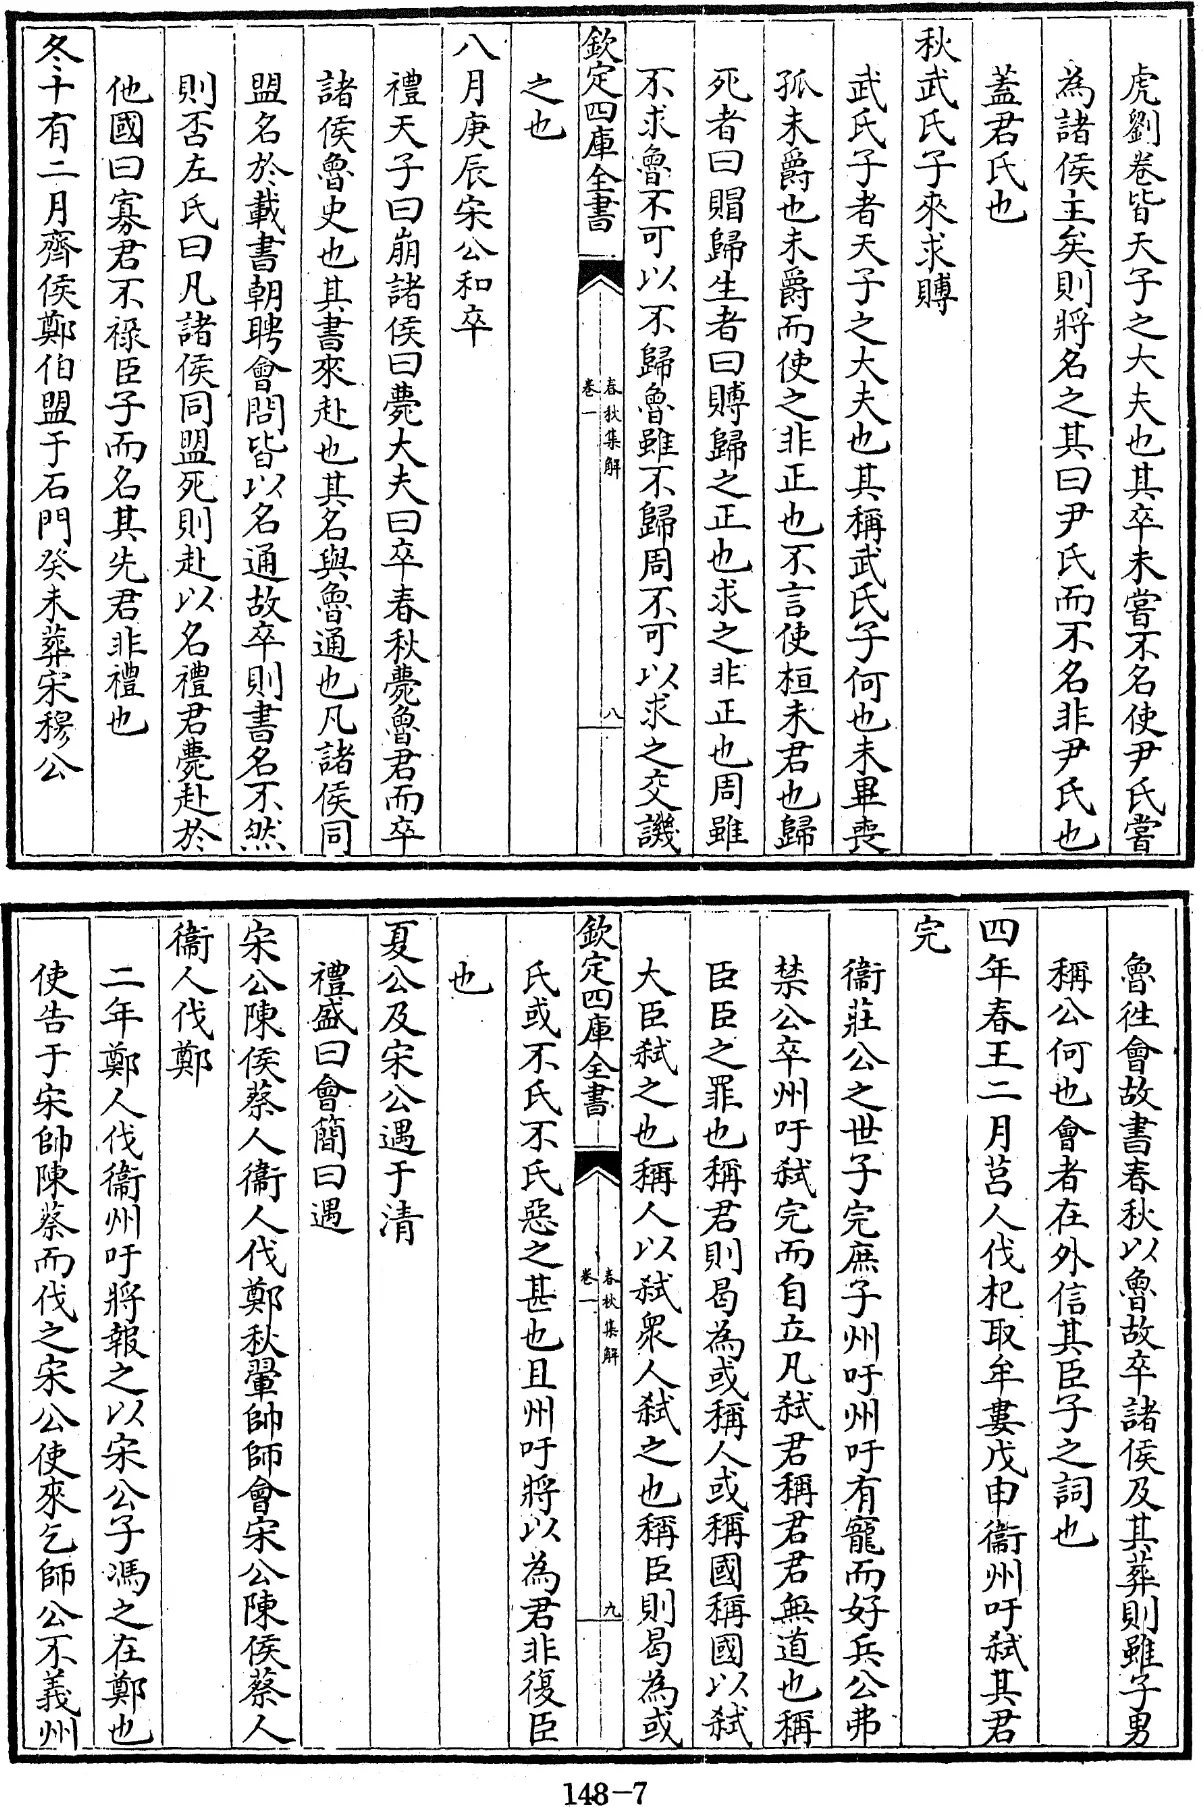 虎劉卷皆天子之大夫也其卒未嘗不名使尹氏嘗
為諸侯主矣則將名之其曰尹氏而不名非尹氏也
蓋君氏也
秋武氏子來求賻
武氏子者天子之大夫也其稱武氏子何也未畢喪
孤未爵也未爵而使之非正也不言使桓未君也歸
死者曰賵歸生者曰賻歸之正也求之非正也周雖
不求魯不可以不歸魯雖不歸周不可以求之交譏
欽定四庫全書
春秋集解
卷一
八
之也
八月庚辰宋公和卒
禮天子曰崩諸侯曰薨大夫曰卒春秋薨魯君而卒
諸侯魯史也其書來赴也其名與魯通也凡諸侯同
盟名於載書朝聘會問皆以名通故卒則書名不然
則否左氏曰凡諸侯同盟死則赴以名禮君薨赴於
他國曰寡君不祿臣子而名其先君非禮也
冬十有二月齊侯鄭伯盟于石門癸未葬宋穆公
魯往會故書春秋以魯故卒諸侯及其葬則雖子男
稱公何也會者在外信其臣子之詞也
四年春王二月莒人伐杞取牟婁戊申衞州吁弒其君
完
衞莊公之世子完庶子州吁州吁有寵而好兵公弗
禁公卒州吁弒完而自立凡弒君稱君君無道也稱
臣臣之罪也稱君則曷為或稱人或稱國稱國以弒
大臣弒之也稱人以弒衆人弒之也稱臣則曷為或
欽定四庫全書
春秋集解
卷一
九
氏或不氏不氏惡之甚也且州吁將以為君非復臣
也
夏公及宋公遇于清
禮盛曰會簡曰遇
宋公陳侯蔡人衞人伐鄭秋翬帥師會宋公陳侯蔡人
衞人伐鄭
二年鄭人伐衞州吁將報之以宋公子馮之在鄭也
使告于宋帥陳蔡而伐之宋公使來乞師公不義州
148-7